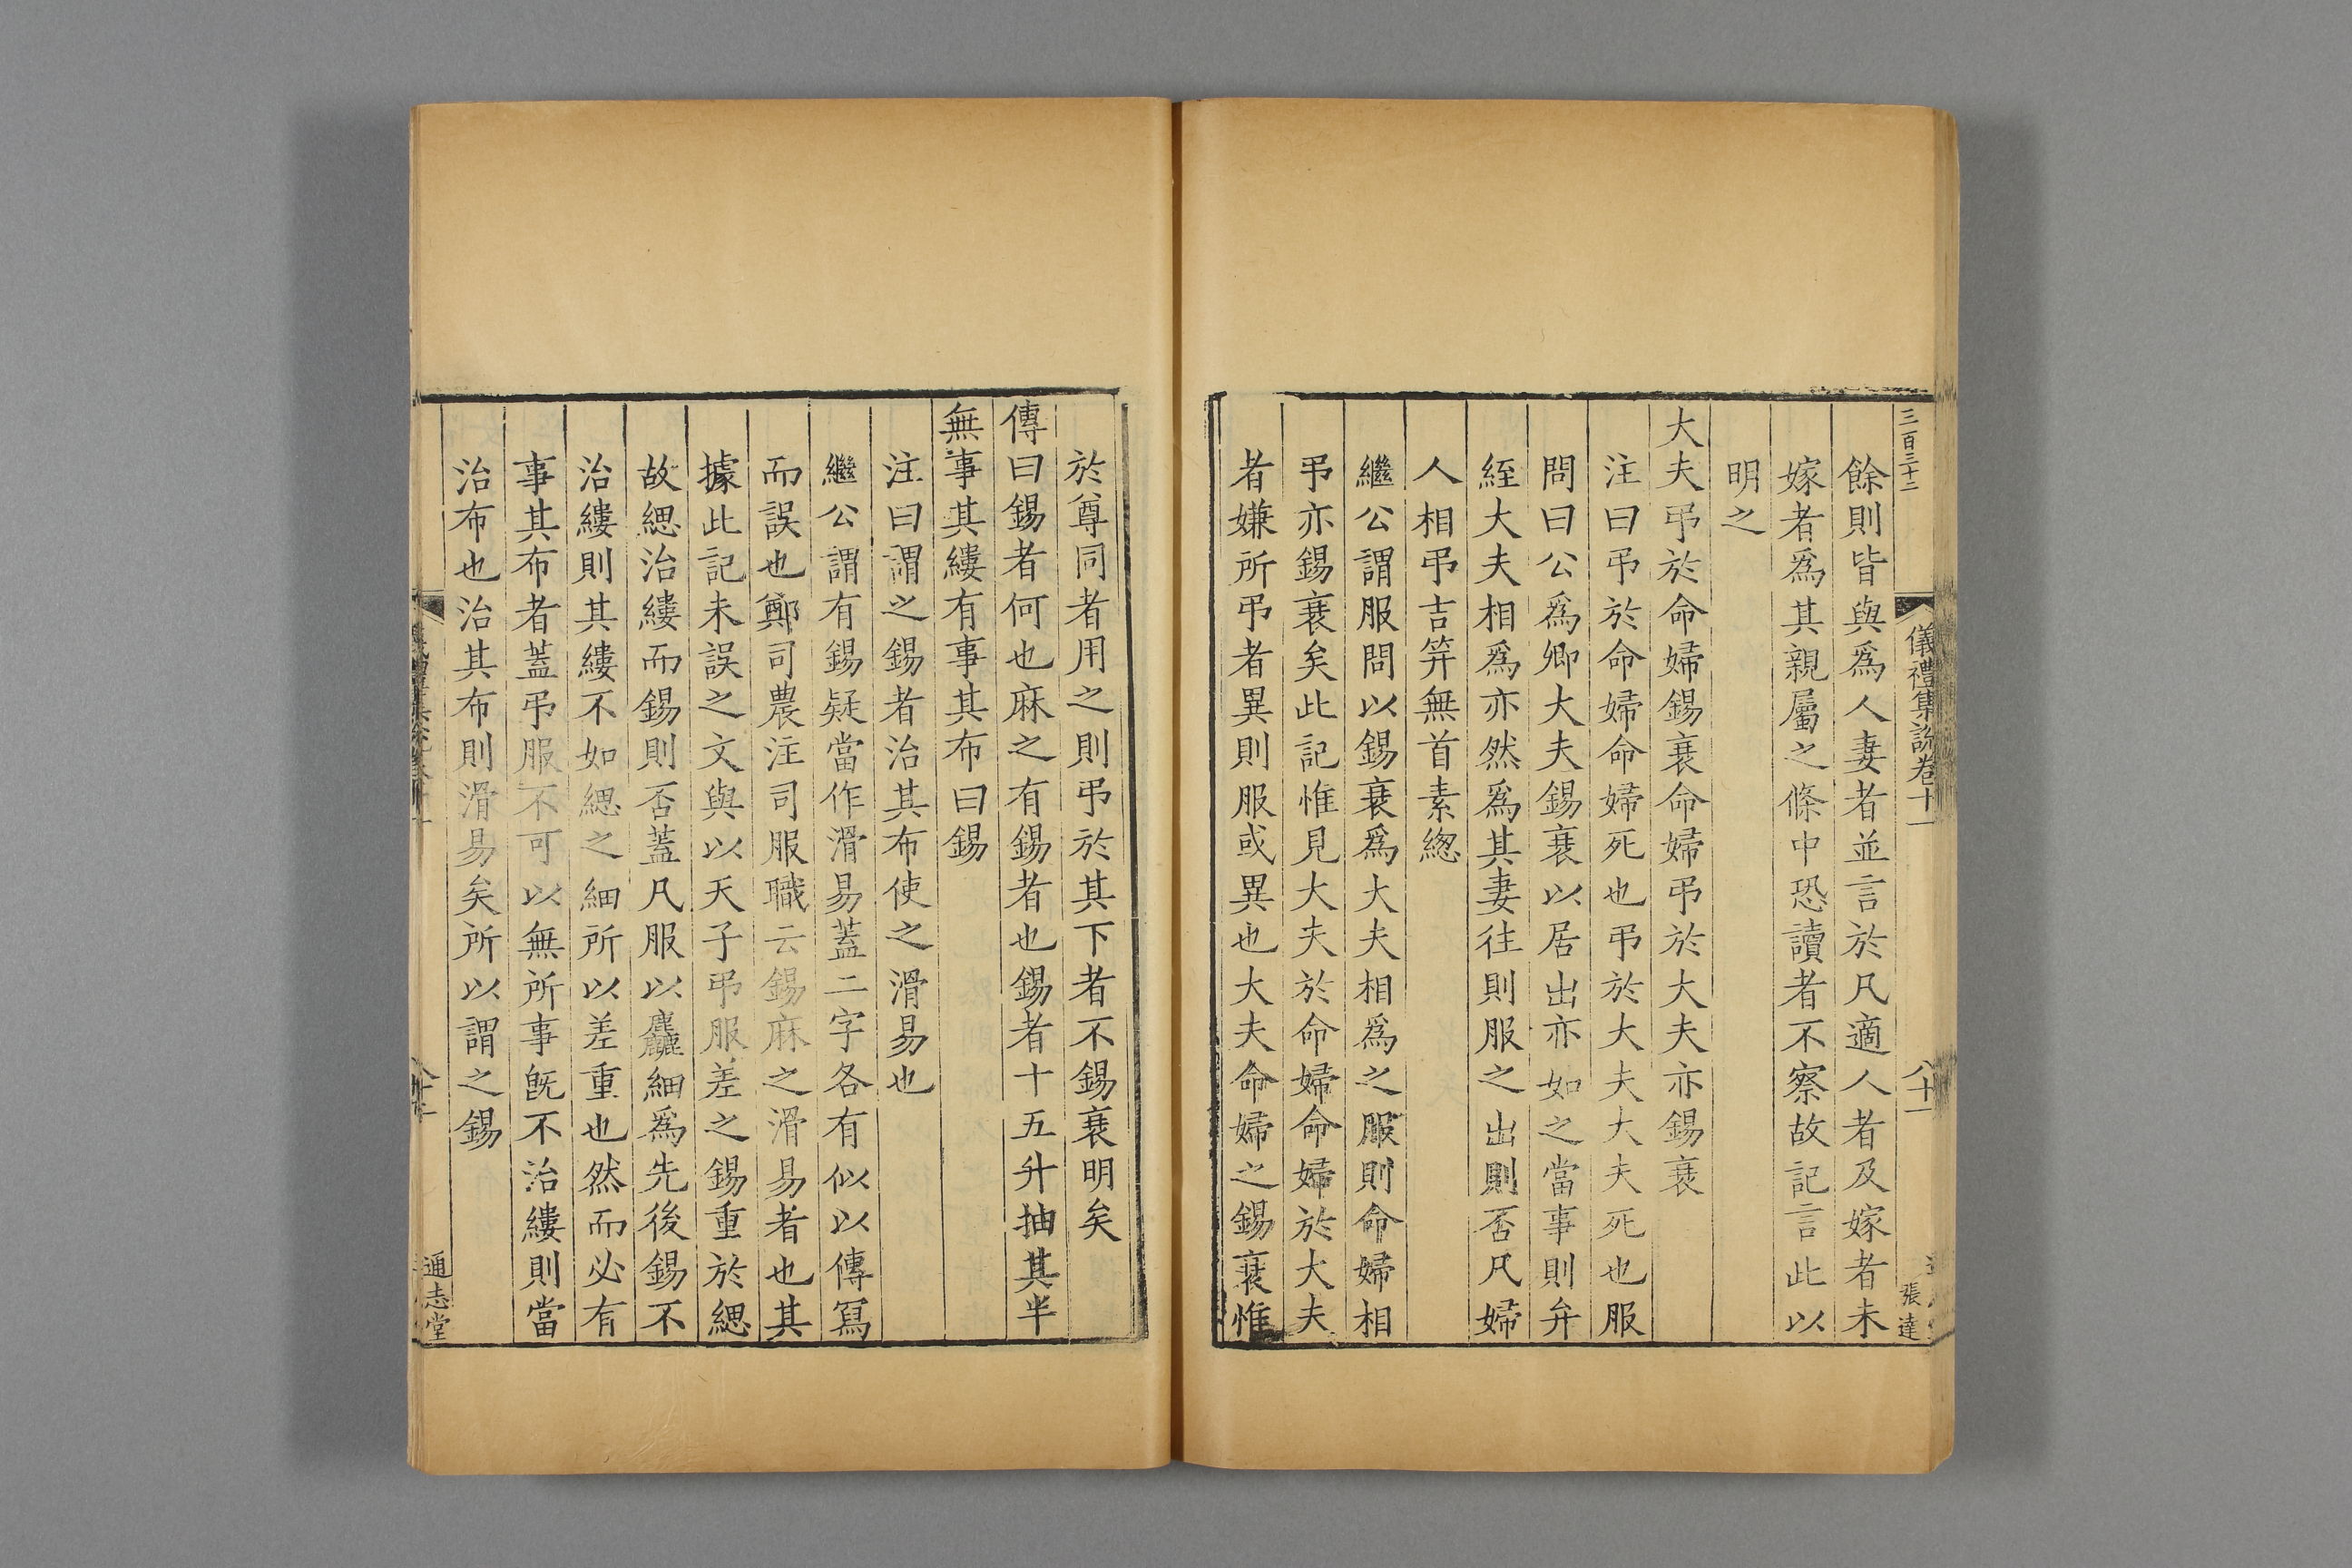 三百三十二
儀禮集說卷十一
八十一
張達
餘則皆與爲人妻者並言於凡適人者及嫁者未
嫁者爲其親屬之條中恐讀者不察故記言此以
明之
大夫弔於命婦錫衰命婦弔於大夫亦錫衰
注曰弔於命婦命婦死也弔於大夫大夫死也服
問曰公爲卿大夫錫衰以居出亦如之當事則弁
絰大夫相爲亦然爲其妻往則服之出則否凡婦
人相弔吉笄無首素緫
繼公謂服問以錫衰爲大夫相爲之服則命婦相
弔亦錫衰矣此記惟見大夫於命婦命婦於大夫
者嫌所弔者異則服或異也大夫命婦之錫衰惟
於尊同者用之則弔於其下者不錫衰明矣
傳曰錫者何也麻之有錫者也錫者十五升抽其半
無事其縷有事其布曰錫
注曰謂之錫者治其布使之滑易也
繼公謂有錫疑當作滑易蓋二字各有似以傳寫
而誤也鄭司農注司服職云錫麻之滑易者也其
據此記未誤之文與以天子弔服差之錫重於緦
故緦治縷而錫則否蓋凡服以麤細爲先後錫不
治縷則其縷不如緦之細所以差重也然而必有
事其布者蓋弔服不可以無所事旣不治縷則當
治布也治其布則滑易矣所以謂之錫
通志堂